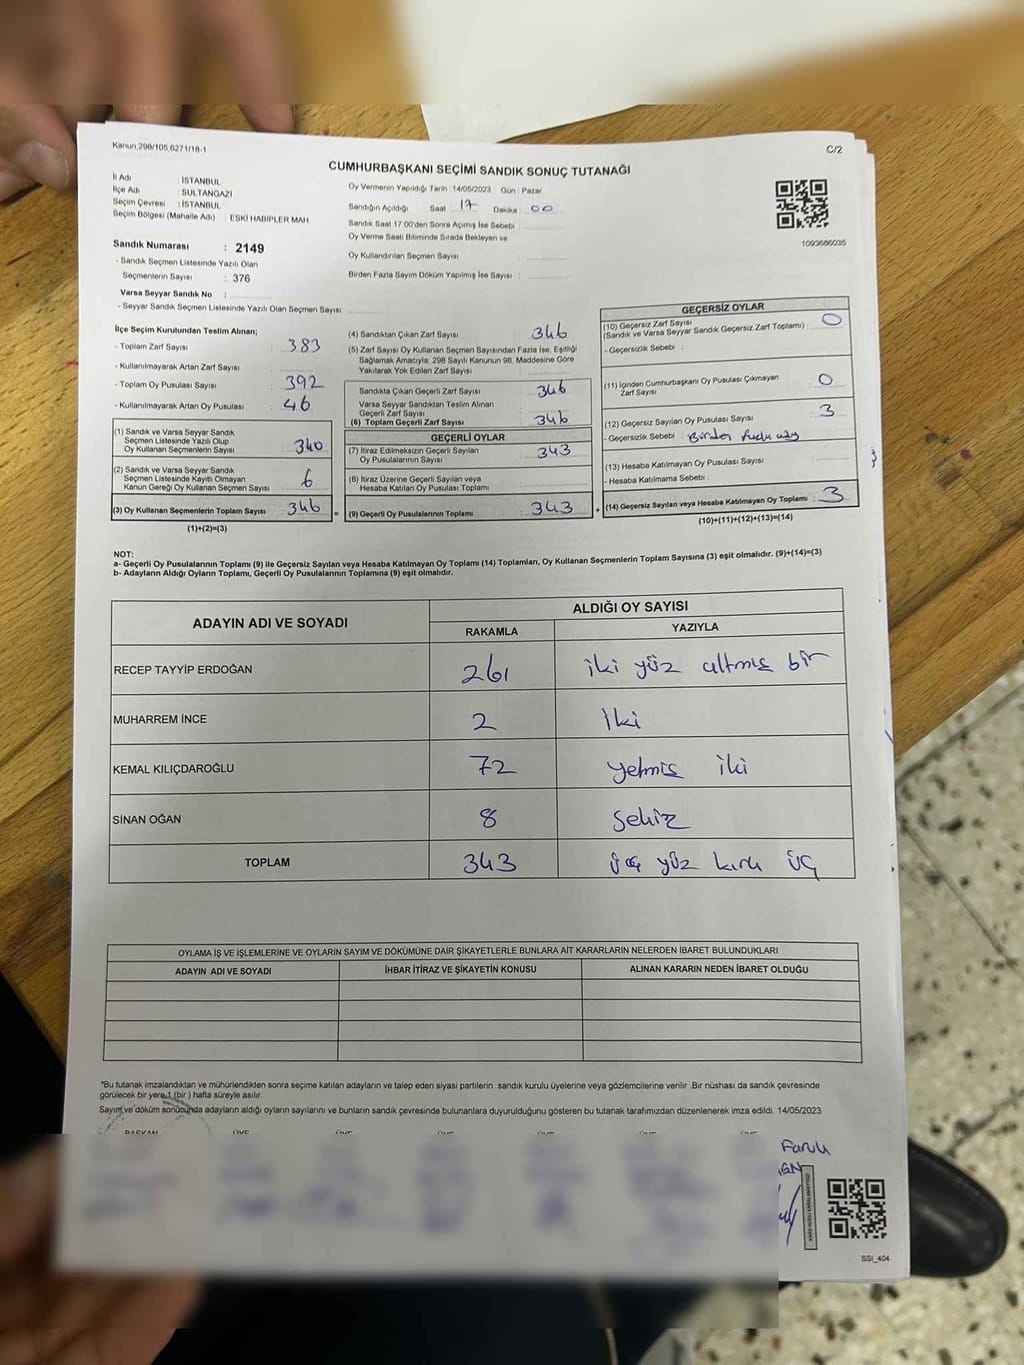 Kanun:298/105,6271/18-1
C/2
CUMHURBAŞKANI SEÇİMİ SANDIK SONUÇ TUTANAĞI
İl Adı : İSTANBUL
İlçe Adı : SULTANGAZİ
Seçim Çevresi : İSTANBUL
Seçim Bölgesi (Mahalle Adı) : ESKİ HABİPLER MAH
Sandık Numarası : 2149
- Sandık Seçmen Listesinde Yazılı Olan
Seçmenlerin Sayısı : 376
Varsa Seyyar Sandık No :
- Seyyar Sandık Seçmen Listesinde Yazılı Olan Seçmen Sayısı:
Oy Vermenin Yapıldığı Tarih :14/05/2023 Gün : Pazar
Sandığın Açıldığı Saat 17 Dakika 00
Sandık Saat 17:00'den Sonra Açılmış İse Sebebi :
Oy Verme Saati Bitiminde Sırada Bekleyen ve
Oy Kullandırılan Seçmen Sayısı :
Birden Fazla Sayım Döküm Yapılmış İse Sayısı :
1093686035
İlçe Seçim Kurulundan Teslim Alınan;
- Toplam Zarf Sayısı : 383
- Kullanılmayarak Artan Zarf Sayısı :
- Toplam Oy Pusulası Sayısı : 392
- Kullanılmayarak Artan Oy Pusulası : 46
(1) Sandık ve Varsa Seyyar Sandık
Seçmen Listesinde Yazılı Olup
Oy Kullanan Seçmenlerin Sayısı : 340
(2) Sandık ve Varsa Seyyar Sandık
Seçmen Listesinde Kayıtlı Olmayan
Kanun Gereği Oy Kullanan Seçmen Sayısı : 6
(3) Oy Kullanan Seçmenlerin Toplam Sayısı : 346
(1)+(2)=(3)
(4) Sandıktan Çıkan Zarf Sayısı : 346
(5) Zarf Sayısı Oy Kullanan Seçmen Sayısından Fazla İse, Eşitliği
Sağlamak Amacıyla, 298 Sayılı Kanunun 98. Maddesine Göre
Yakılarak Yok Edilen Zarf Sayısı :
Sandıkta Çıkan Geçerli Zarf Sayısı : 346
Varsa Seyyar Sandıktan Teslim Alınan
Geçerli Zarf Sayısı :
(6) Toplam Geçerli Zarf Sayısı : 346
GEÇERLİ OYLAR
(7) İtiraz Edilmeksizin Geçerli Sayılan
Oy Pusulalarının Sayısı : 343
(8) İtiraz Üzerine Geçerli Sayılan veya
Hesaba Katılan Oy Pusulası Toplamı :
= (9) Geçerli Oy Pusulalarının Toplamı : 343 +
GEÇERSİZ OYLAR
(10) Geçersiz Zarf Sayısı
(Sandık ve Varsa Seyyar Sandık Geçersiz Zarf Toplamı) : 0
- Geçersizlik Sebebi :
(11) İçinden Cumhurbaşkanı Oy Pusulası Çıkmayan
Zarf Sayısı : 0
(12) Geçersiz Sayılan Oy Pusulası Sayısı : 3
- Geçersizlik Sebebi : Birden fazla oy
(13) Hesaba Katılmayan Oy Pusulası Sayısı :
- Hesaba Katılmama Sebebi :
(14) Geçersiz Sayılan veya Hesaba Katılmayan Oy Toplamı : 3
(10)+(11)+(12)+(13)=(14)
NOT:
a- Geçerli Oy Pusulalarının Toplamı (9) ile Geçersiz Sayılan veya Hesaba Katılmayan Oy Toplamı (14) Toplamları, Oy Kullanan Seçmenlerin Toplam Sayısına (3) eşit olmalıdır. (9)+(14)=(3)
b- Adayların Aldığı Oyların Toplamı, Geçerli Oy Pusulalarının Toplamına (9) eşit olmalıdır.
ADAYIN ADI VE SOYADI
ALDIĞI OY SAYISI
RAKAMLA YAZIYLA
RECEP TAYYİP ERDOĞAN 261 iki yüz altmış bir
MUHARREM İNCE 2 iki
KEMAL KILIÇDAROĞLU 72 yetmiş iki
SİNAN OĞAN 8 Sekiz
TOPLAM 343 üç yüz kırk üç
OYLAMA İŞ VE İŞLEMLERİNE VE OYLARIN SAYIM VE DÖKÜMÜNE DAİR ŞİKAYETLERLE BUNLARA AİT KARARLARIN NELERDEN İBARET BULUNDUKLARI
ADAYIN ADI VE SOYADI İHBAR İTİRAZ VE ŞİKAYETİN KONUSU ALINAN KARARIN NEDEN İBARET OLDUĞU
*Bu tutanak imzalandıktan ve mühürlendikten sonra seçime katılan adayların ve talep eden siyasi partilerin sandık kurulu üyelerine veya gözlemcilerine verilir .Bir nüshası da sandık çevresinde
görülecek bir yere 1 (bir) hafta süreyle asılır.
Sayım ve döküm sonucunda adayların aldığı oyların sayılarını ve bunların sandık çevresinde bulunanlara duyurulduğunu gösteren bu tutanak tarafımızdan düzenlenerek imza edildi. 14/05/2023
BAŞKAN ÜYE ÜYE ÜYE ÜYE ÜYE ÜYE
Faruk
KARE KODU KARALAMAYINIZ!
SSİ_404